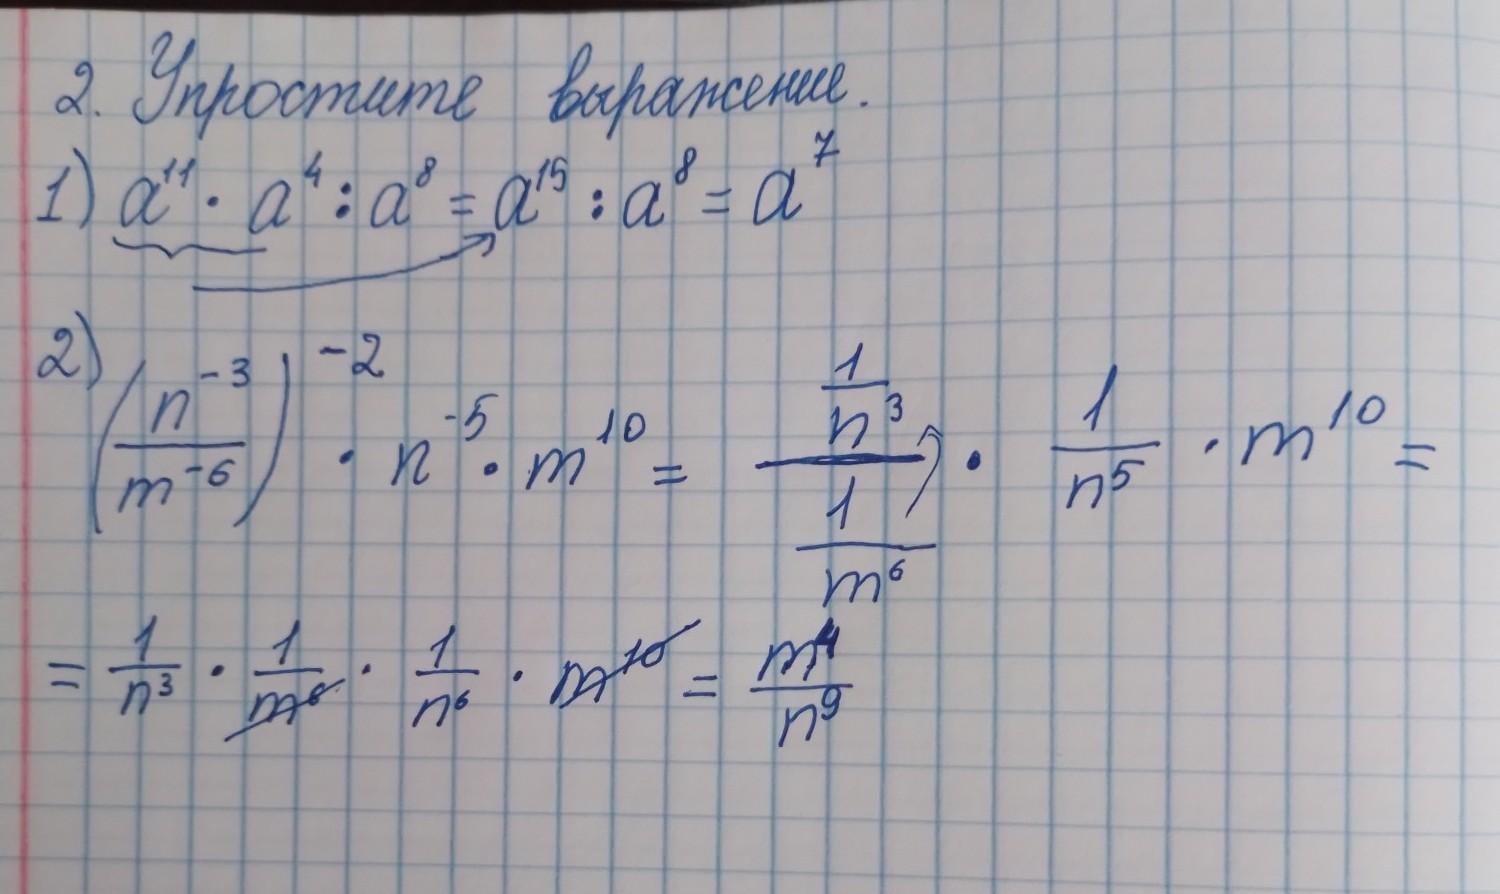 2. Упростите выражение.
1) a¹¹ · a⁴ : a⁸ = a¹⁵ : a⁸ = a⁷
2) (n⁻³/m⁻⁶)⁻² · n⁻⁵ · m¹⁰ = (1/n³)/(1/m⁶) · 1/n⁵ · m¹⁰ =
= 1/n³ · 1/m⁶ · 1/n⁶ · m¹⁰ = m⁴/n⁹